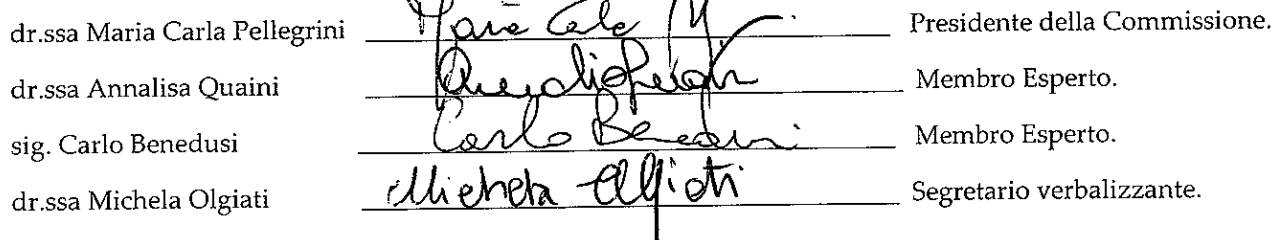 dr.ssa Maria Carla Pellegrini Maria Carla Presidente della Commissione.
dr.ssa Annalisa Quaini Membro Esperto.
sig. Carlo Benedusi Carlo Benedusi Membro Esperto.
dr.ssa Michela Olgiati Michela Olgiati Segretario verbalizzante.